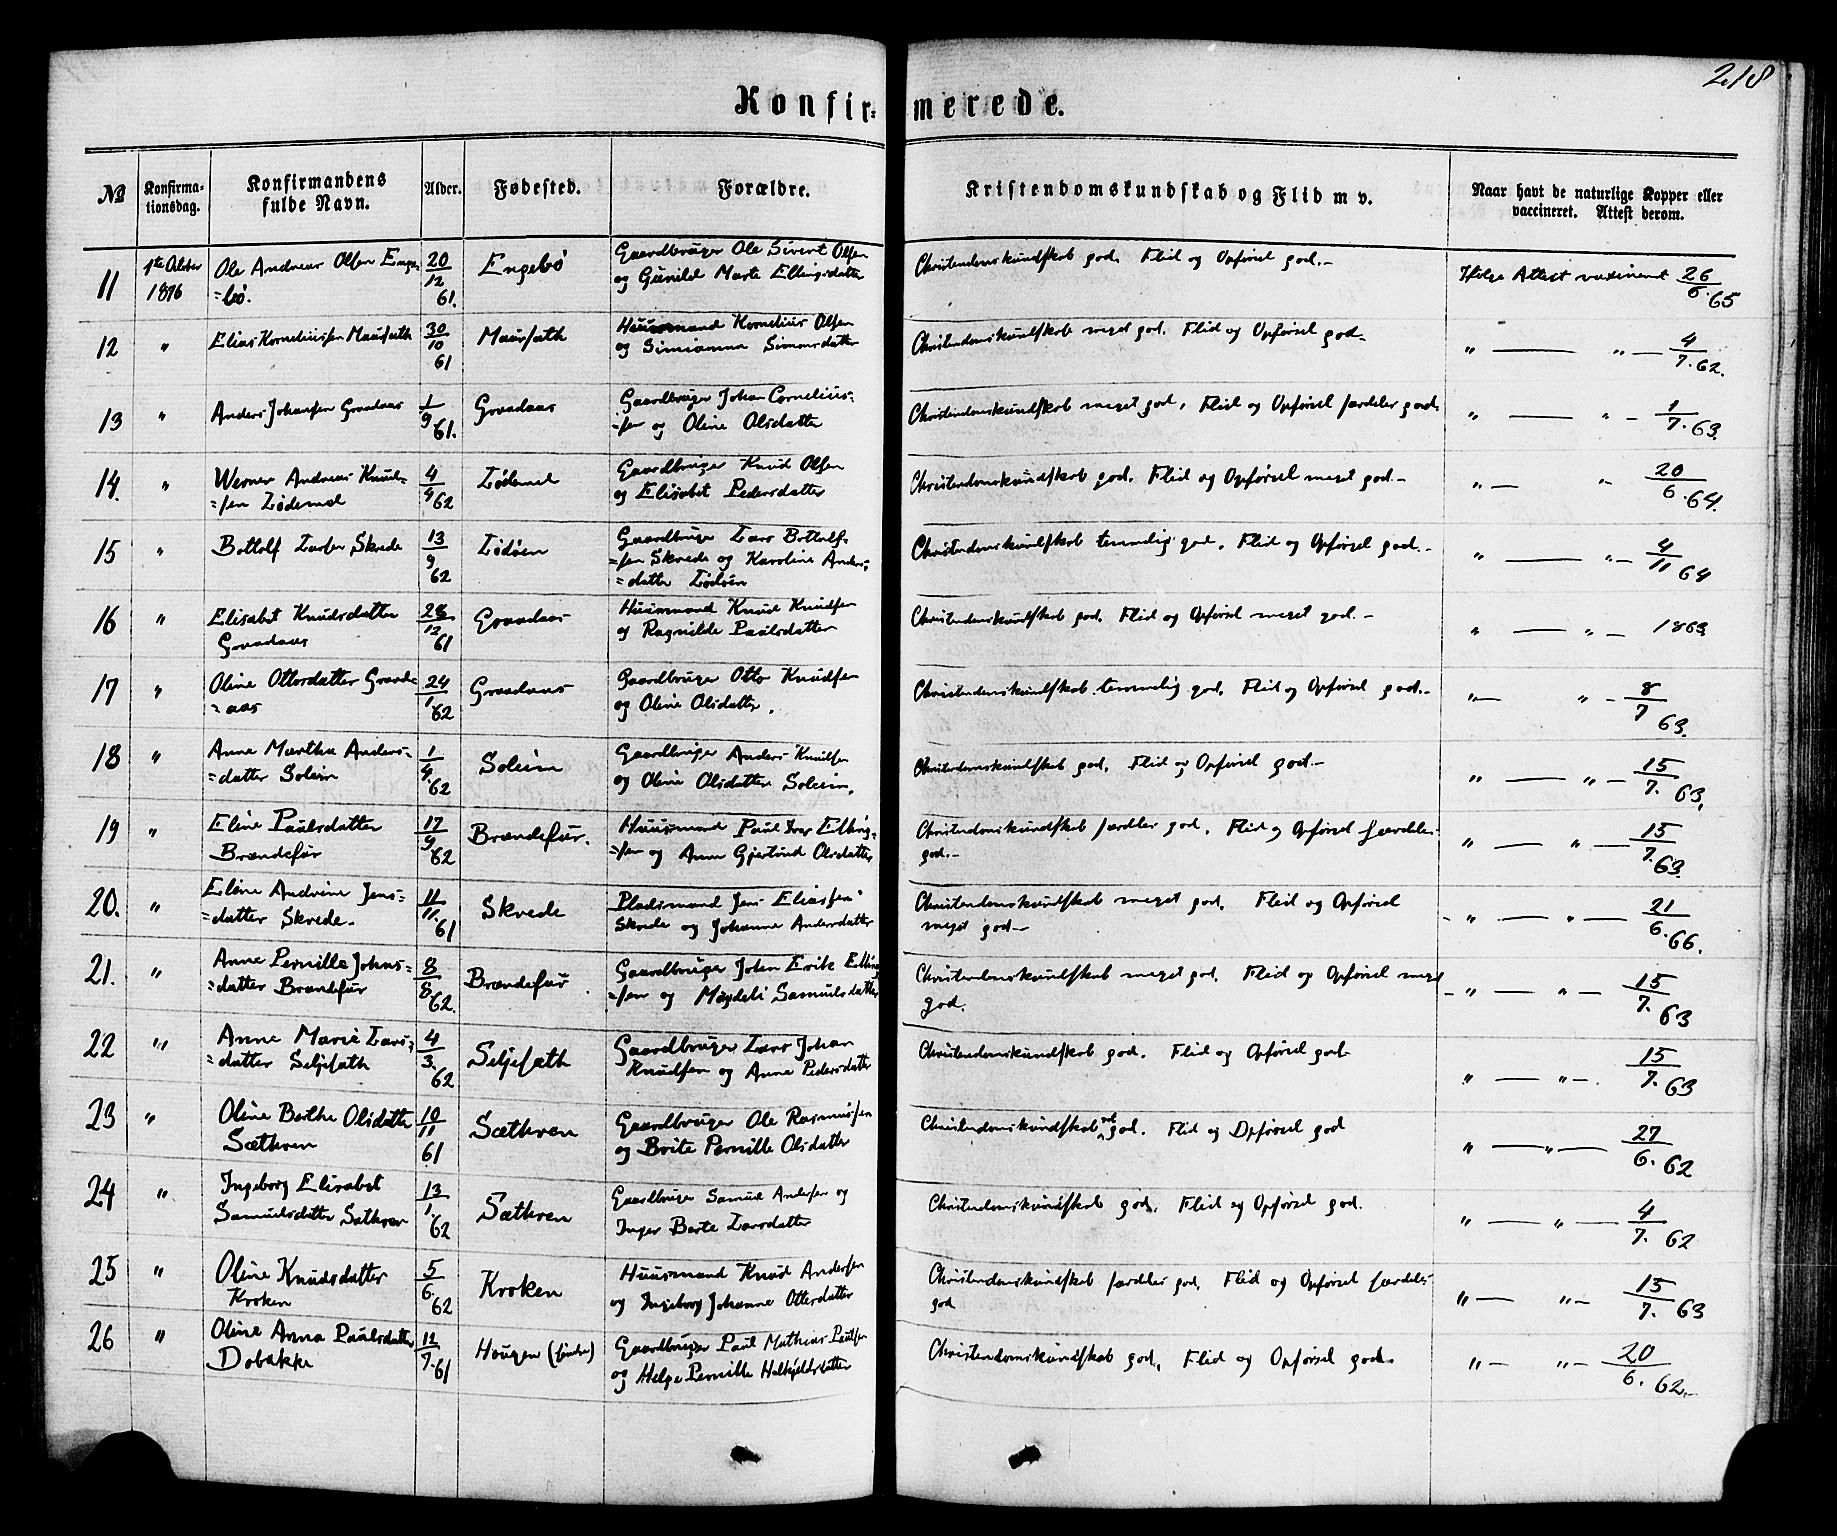 218
Konfir= merede.
№ | Konfirma-tionsdag. | Konfirmandens fulde Navn. | Alder. | Fødested. | Forældre. | Kristendomskundskab og Flid m v. | Naar havt de naturlige Kopper eller vaccineret. Attest derom.
11 | 1ste October 1876 | Ole Andreas Olsen Enge=bø. | 20/12 61. | Engebø | Gaardbruger Ole Sivert Olsen og Gunild Marte Ellingsdatter | Christendomskundskab god. Flid og Opførsel god.- | Ifølge Attest vaxineret 26/6. 65
12 | " | Elias Korneliussen Maursæth | 30/10 61 | Maursæth | Huusmand Kornelius Olsen og Simianna Simonsdatter | Christendomskundskab meget god. Flid og Opførsel god- | " — " — 4/7. 62.
13 | " | Anders Johansen Graadaas | 1/9 61. | Graadaas | Gaardbruger Johan Cornelius=sen og Oline Olsdatter | Christendomskundskab meget god, Flid og Opførsel særdeles god. | " — " — 1/7. 63.
14. | " | Werner Andreas Knud=sen Lødemel | 4/9 62 | Lødemel | Gaardbruger Knud Olsen og Elisabet Pedersdatter | Christendomskundskab god. Flid og Opførsel meget god.- | " — " 20/6. 64.
15 | " | Bottolf Larsen Skrede | 13/9 62 | Lødøen | Gaardbruger Lars Bottolf=sen Skrede og Karoline Anders=datter Lødøen | Christendomskundskab temmelig god. Flid og Opførsel god.- | " — " — 4/11 64
16 | " | Elisabet Knudsdatter Graadaas | 28/12 61 | Graadaas | Huusmand Knud Knudsen og Ragnilde Paulsdatter | Christendomskundskab god. Flid og Opførsel meget god.- | " — " — 1863
17 | " | Oline Ottosdatter Graad=aas | 24/1. 62 | Graadaas | Gaardbruger Otto Knudsen og Oline Olsdatter. | Christendomskundskab temmelig god. Flid og Opførsel god.- | " — " — 8/7 63.
18 | " | Anne Martha Anders=datter Soleim | 1/4. 62 | Soleim | Gaardbruger Anders Knudsen og Oline Olsdatter Soleim. | Christendomskundskab god. Flid og Opførsel god.- | " — " — 15/7. 63.
19 | " | Eline Paulsdatter Brændefur | 17/9 62 | Brændefur. | Huusmand Paul Iver Elling=sen og Anne Gjertrud Olsdatter | Christendomskundskab særdeles god. Flid og Opførsel særdeles god.- | " — " — 15/7. 63.
20. | " | Eline Andrine Jens=datter Skrede. | 11/11. 61 | Skrede | Pladsmand Jens Eliassen Skrede og Johanne Andersdatter | Christendomskundskab meget god. Flid og Opførsel meget god- | - " — " — 21/6. 66.
21. | " | Anne Pernille Johns=datter Brændefur | 8/8. 62. | Brændefur | Gaardbruger John Erik Elling=sen og Magdeli Samuelsdatter | Christendomskundskab meget god. Flid og Opførsel meget god. | - " — " — 15/7. 63
22 | " | Anne Marie Lars=datter Seljesæth | 4/3. 62 | Seljesæth | Gaardbruger Lars Johan Knudsen og Anne Pedersdatter | Christendomskundskab god. Flid og Opførsel god | " — " —. 15/7. 63
23 | " | Oline Berthe Olsdatter Sæthren | 10/11 61 | Sæthren | Gaardbruger Ole Rasmussen og Brite Pernille Olsdatter | Christendomskundskab god. Flid og Opførsel god | " — " — 27/6. 62
24 | " | Ingeborg Elisabet Samuelsdatter Sæthren | 13/1. 62 | Sæthren | Gaardbruger Samuel Andersen og Inger Berte Larsdatter | Christendomskundskab god. Flid og Opførsel god. | " — " — 4/7. 62
25 | " | Oline Knudsdatter Kroken | 5/6. 62 | Kroken | Huusmand Knud Andersen og Ingeborg Johanne Ottersdatter | Christendomskundskab særdeles god. Flid og Opførsel særdeles god | " — " — 15/7. 63
26 | " | Oline Anna Paulsdatter Dobakke | 12/7. 61 | Hougen (søndre) | Gaardbruger Paul Mathias Paulsen og Helge Pernille Halkjeldsdatter | Christendomskundskab god, Flid og Opførsel god. | " — " — 20/6. 62.-